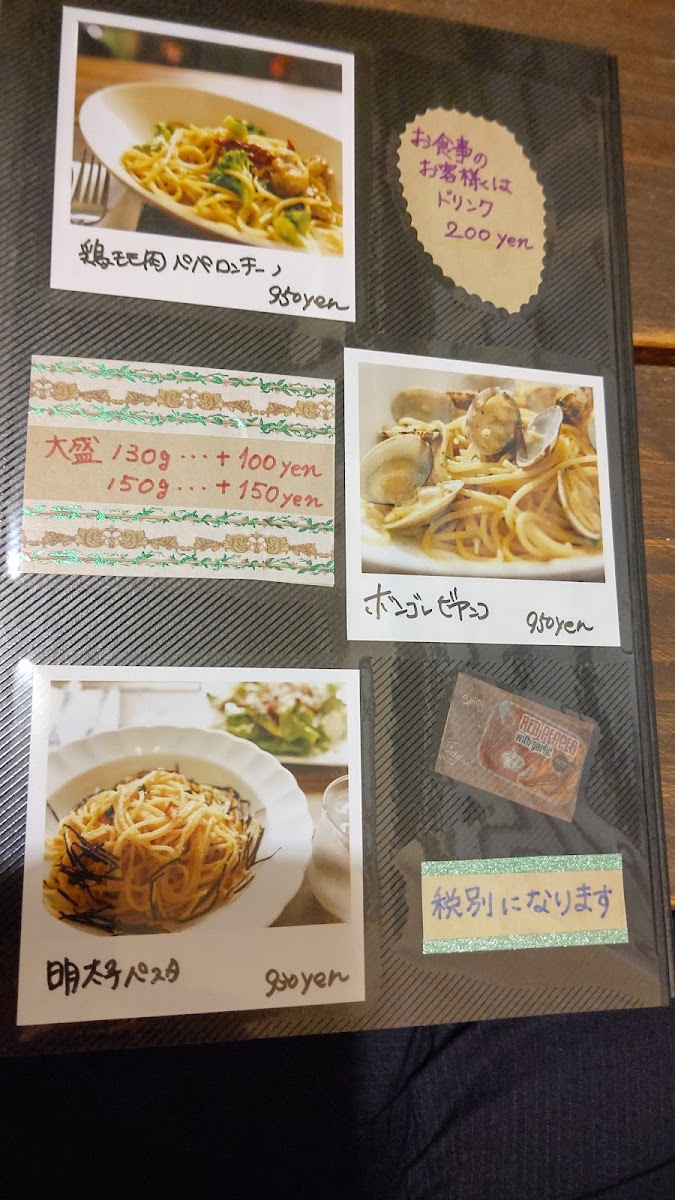 鶏モモ肉ペペロンチーノ
950yen
お食事の
お客様は
ドリンク
200yen
大盛 130g…+100yen
150g…+150yen
ボンゴレビアンコ
950yen
RED PEPPER
with garlic
明太子パスタ
930yen
税別になります